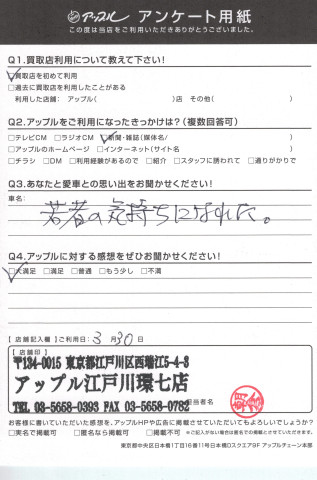 アップル アンケート用紙
この度は当店をご利用いただきありがとうございました。
Q1.買取店利用について教えて下さい!
□買取店を初めて利用
□過去に買取店を利用したことがある
利用した店舗：アップル( )店 その他( )
Q2.アップルをご利用になったきっかけは?(複数回答可)
□テレビCM □ラジオCM □新聞・雑誌(媒体名/ )
□アップルのホームページ □インターネット(サイト名 )
□チラシ □DM □利用経験があるので □紹介 □スタッフに誘われて □通りがかりで
Q3.あなたと愛車との思い出をお聞かせください!
車名：
若者の気持ちになれた。
Q4.アップルに対する感想をぜひお聞かせください!
□大満足 □満足 □普通 □もう少し □不満
【店舗記入欄】ご利用日： 3 月 30 日
【店舗印】
〒134-0015 東京都江戸川区西瑞江5-4-3
アップル江戸川環七店
TEL 03-5658-0393 FAX 03-5658-0782
担当者名
お客様に書いていただいた感想を、アップルHPや広告に掲載させていただいてもよろしいでしょうか?
□実名で掲載可 □匿名なら掲載可 □掲載不可 ※ご記入がない場合は匿名での掲載とさせていただきます。
東京都中央区日本橋1丁目16番11号日本橋Dスクエア9F アップルチェーン本部